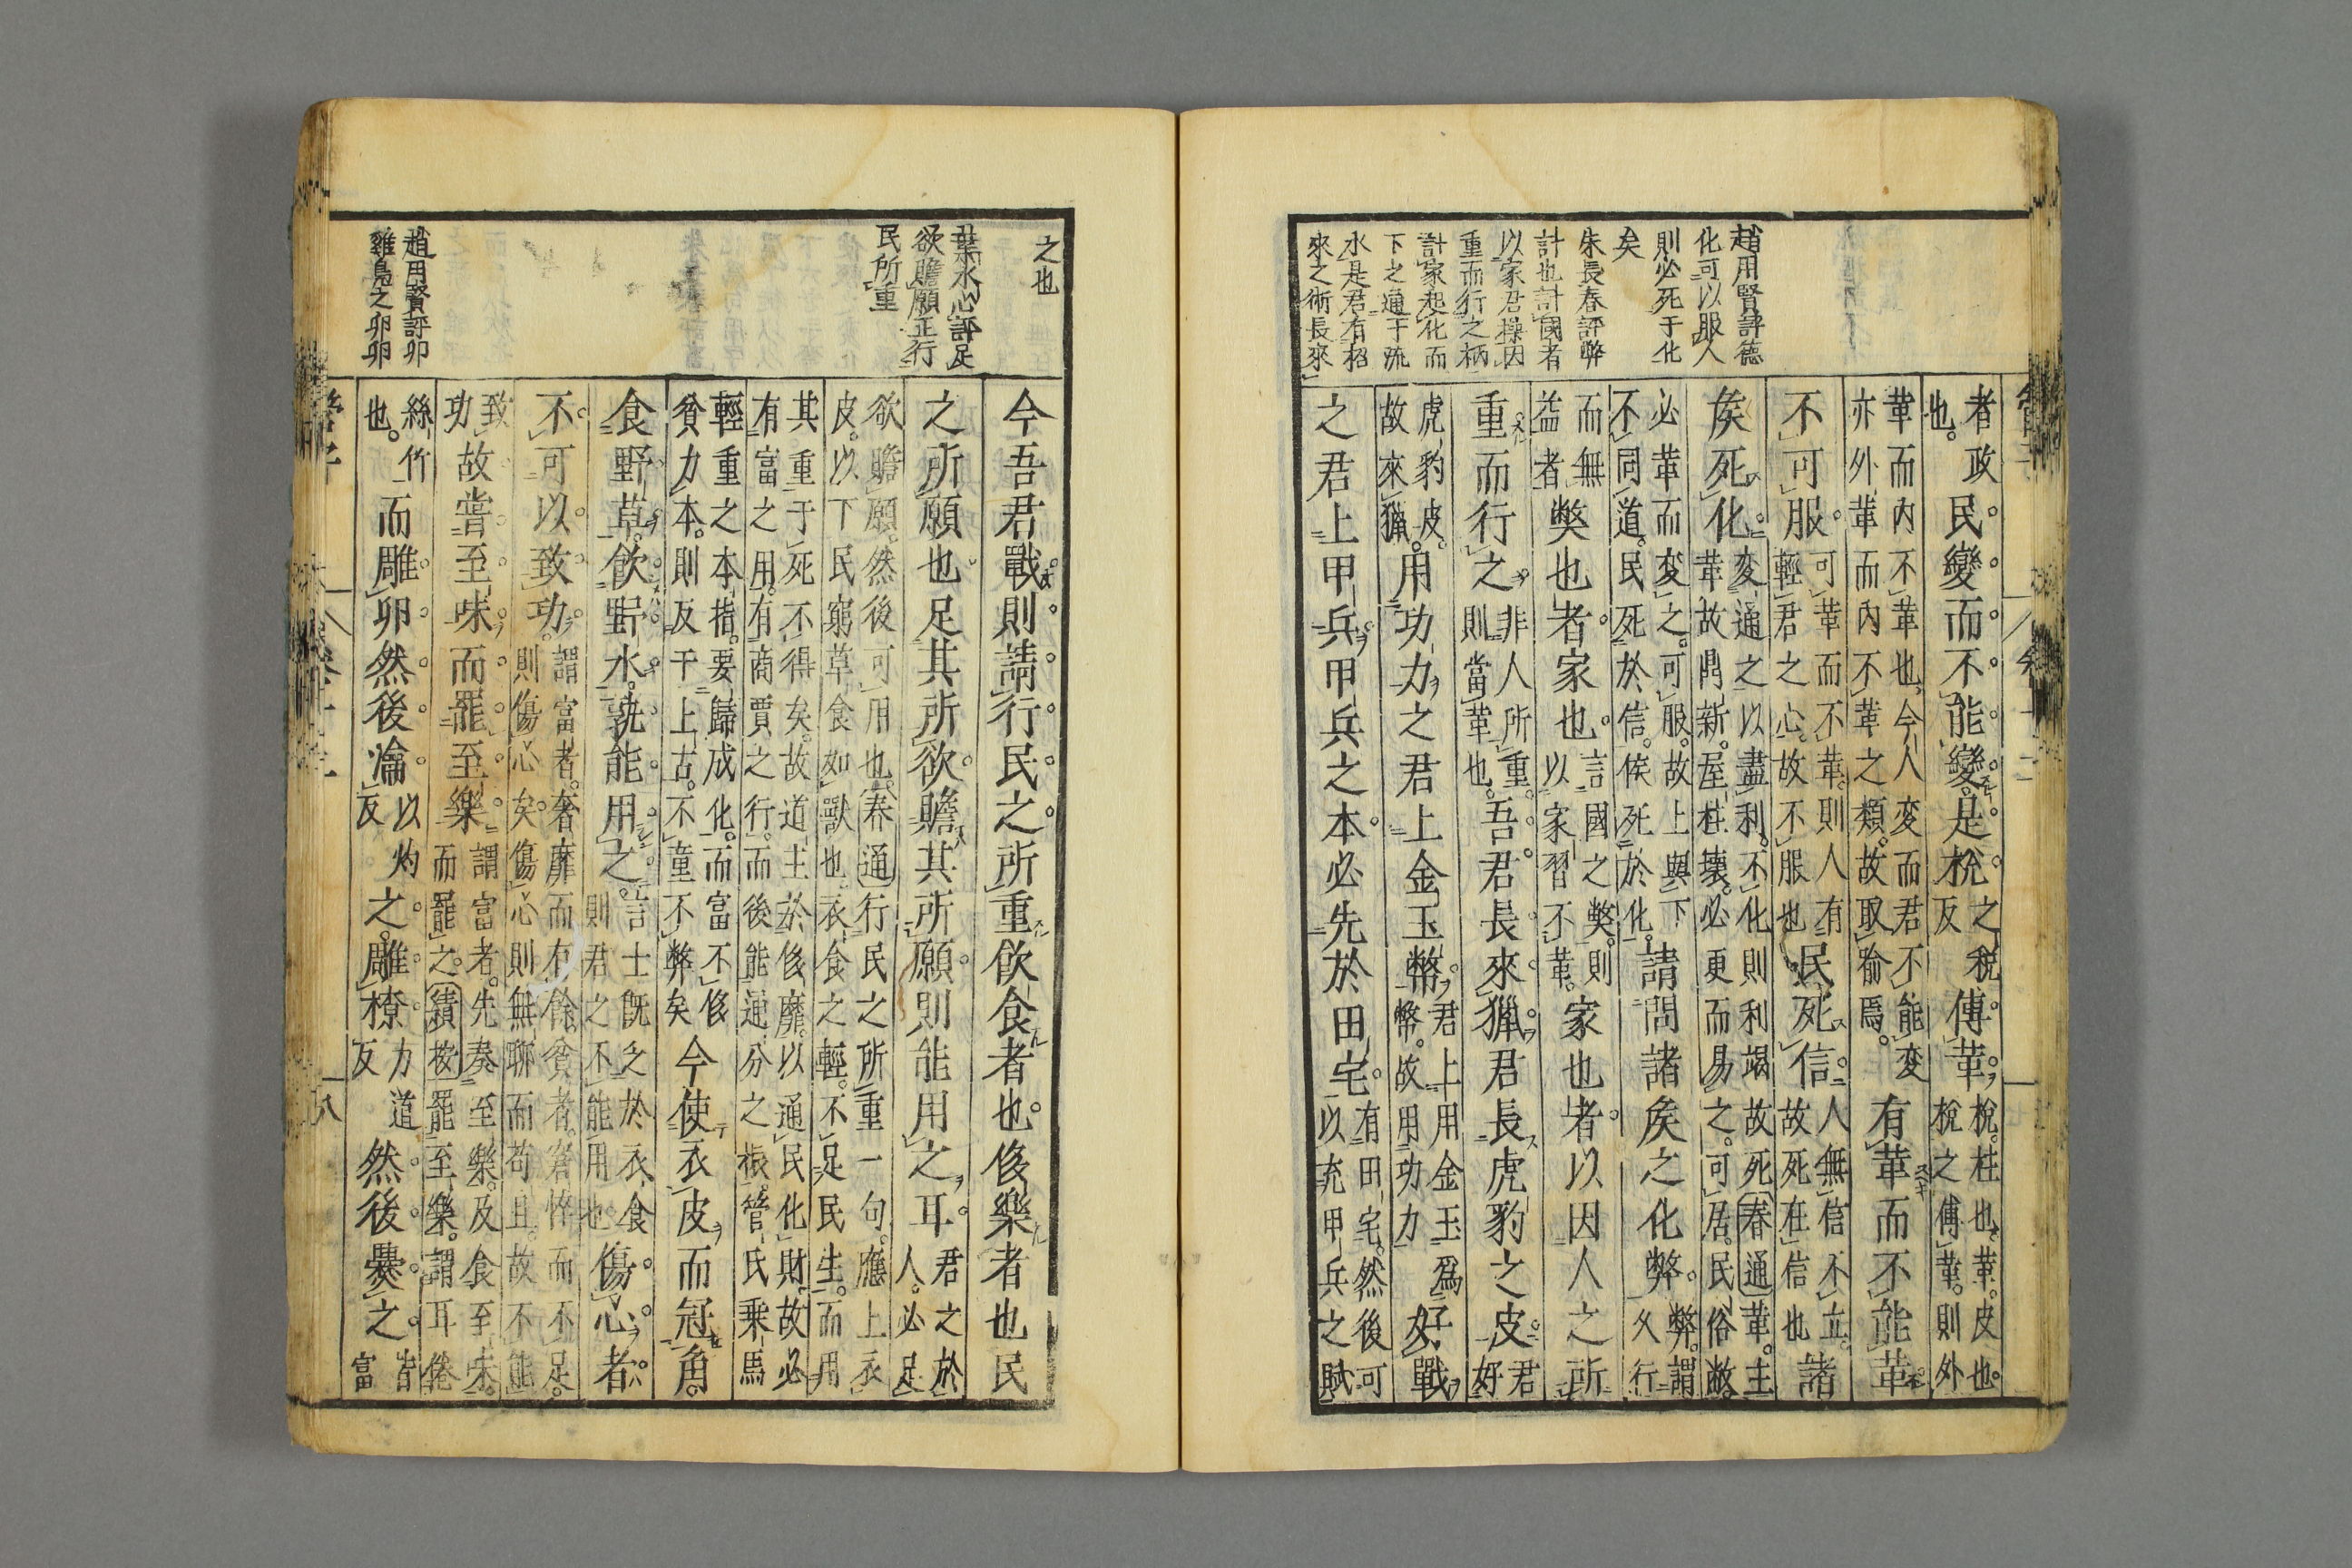 趙用賢評德
化可以服人
則必死于化
矣
朱長春評弊
計也計國者
以家君操因
重而行之柄
計家起化而
下之通于流
水是君有招
來之術長來
者政
也。
民變而不能變。是棁
之稅
反
傳革。
棁。柱也。革。皮也。
棁之傅革。則外
革而内不革也。今人変而君不能変
亦外革而内不革之類。故取喻焉。
有革而不能革
不可服。
可革而不革。則人有
輕君之心。故不服也
民死信。
人無信不立。
故死在信也
諸
矦死化。
変通之以盡利。不化則利竭故死春通革。主
革故鼎新。屋柱壊。必更而易之。可居。民俗敝。
必革而変之。可服。故上與下
不同道。民死於信。侯死於化。
請問諸矦之化弊。
弊。謂
久行
而無
益者
弊也者。家也。
言國之弊。則
以家習不革。
家也者。以因人之所
重而行之
非人所重。
則當革也。
吾君長來獵君長虎豹之皮。
君
好
虎豹皮。
故來獵。
用功力之君上金玉幣。
君上用金玉爲
幣。故用功力
好戰
之君上甲兵。甲兵之本必先於田宅。
有田宅。然後可
以充甲兵之賦
之也
葉水心評足
欲贍願正行
民所重
趙用賢評卵
雞鳥之卵卵
今吾君戰。則請行民之所重飲食者也。侈樂者也民
之所願也足其所欲贍其所願則能用之耳。
君之於
人。必足
欲贍願。然後可用也。春通行民之所重一句。應上衣
皮。以下民窮草食如獸也。衣食之輕。不足民生。而用
其重于死不得矣。故道主於侈靡。以通民化財。故必
有富之用。有商賈之行。而後能通分之振。管氏乘馬
輕重之本指。要歸成化。而富不侈
貧力本。則反干上古。不童不弊矣
今使衣皮而冠角。
食野草。飲野水。孰能用之。
言士既乏於衣食
則君之不能用也。
傷心者。
不可以致功。
謂富者。奢靡而有餘。貧者。窘悴而不足。
則傷心矣。傷心則無聊而苟且。故不能
致
功
故嘗至味而罷至樂
謂富者。先奏至樂。及食至味。
而罷之。績按罷至樂。謂耳倦
絲竹
也。
而雕卵然後瀹
以灼
反
之。雕橑
力道
反
然後爨之。
皆
富